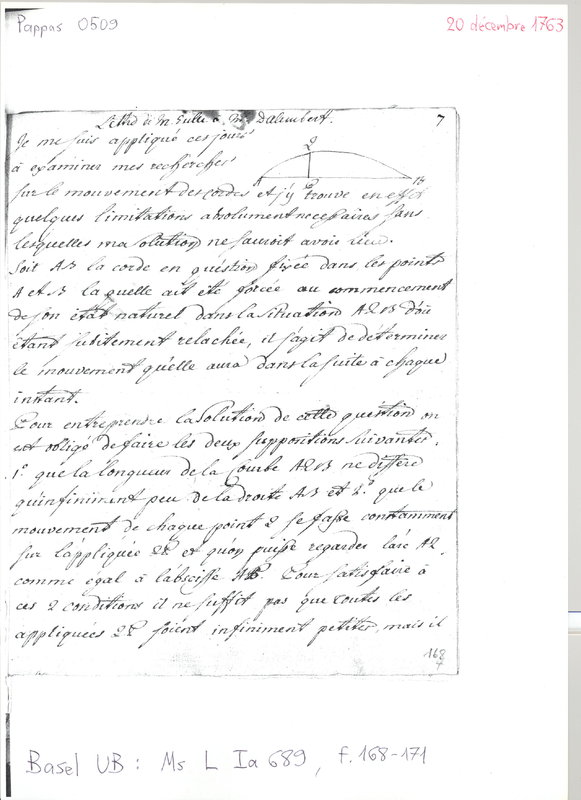 Pappas 0509
20 décembre 1763
Lettre de M. Euler à Mr. Dalembert.
7
Je me suis appliqué ces jours
à examiner mes recherches
sur le mouvement des cordes et j'y trouve en effet
quelques limitations absolument necessaires sans
lesquelles ma solution ne sauroit avoir lieu.
Soit AB la corde en quéstion fixée dans les points
A et B la quelle ait été forcée au commencement
de son état naturel dans la situation AQB d'où
étant subitement relachée, il s'agit de déterminer
le mouvement qu'elle aura dans la suite à chaque
instant.
Pour entreprendre la Solution de cette question on
est obligé de faire les deux suppositions suivantes.
1.° que la longueur de la courbe AQB ne differe
qu'infiniment peu de la droite AB et 2.° que le
mouvement de chaque point Q se fasse constamment
sur l'appliquée QP et qu'on puisse regarder l'arc AQ
comme égal à l'abscisse AP. Pour satisfaire à
ces 2 conditions il ne suffit pas que toutes les
appliquées QP soient infiniment petites, mais il
168
7
Basel UB : Ms L Ia 689, f. 168-171